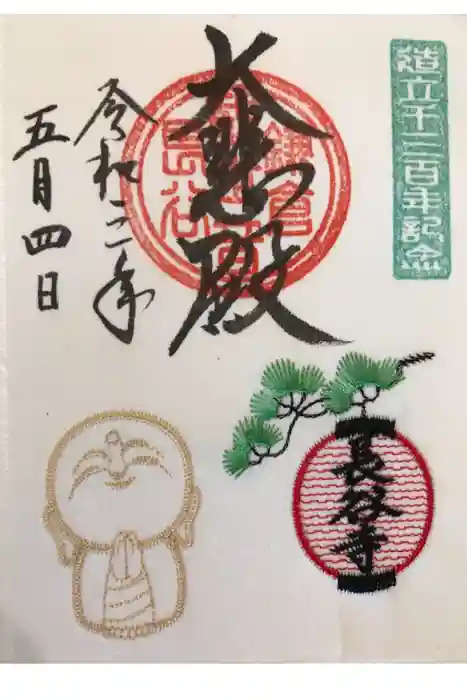 造立千三百年記念
大悲殿
鎌倉
長谷
令和三年
五月四日
長谷寺